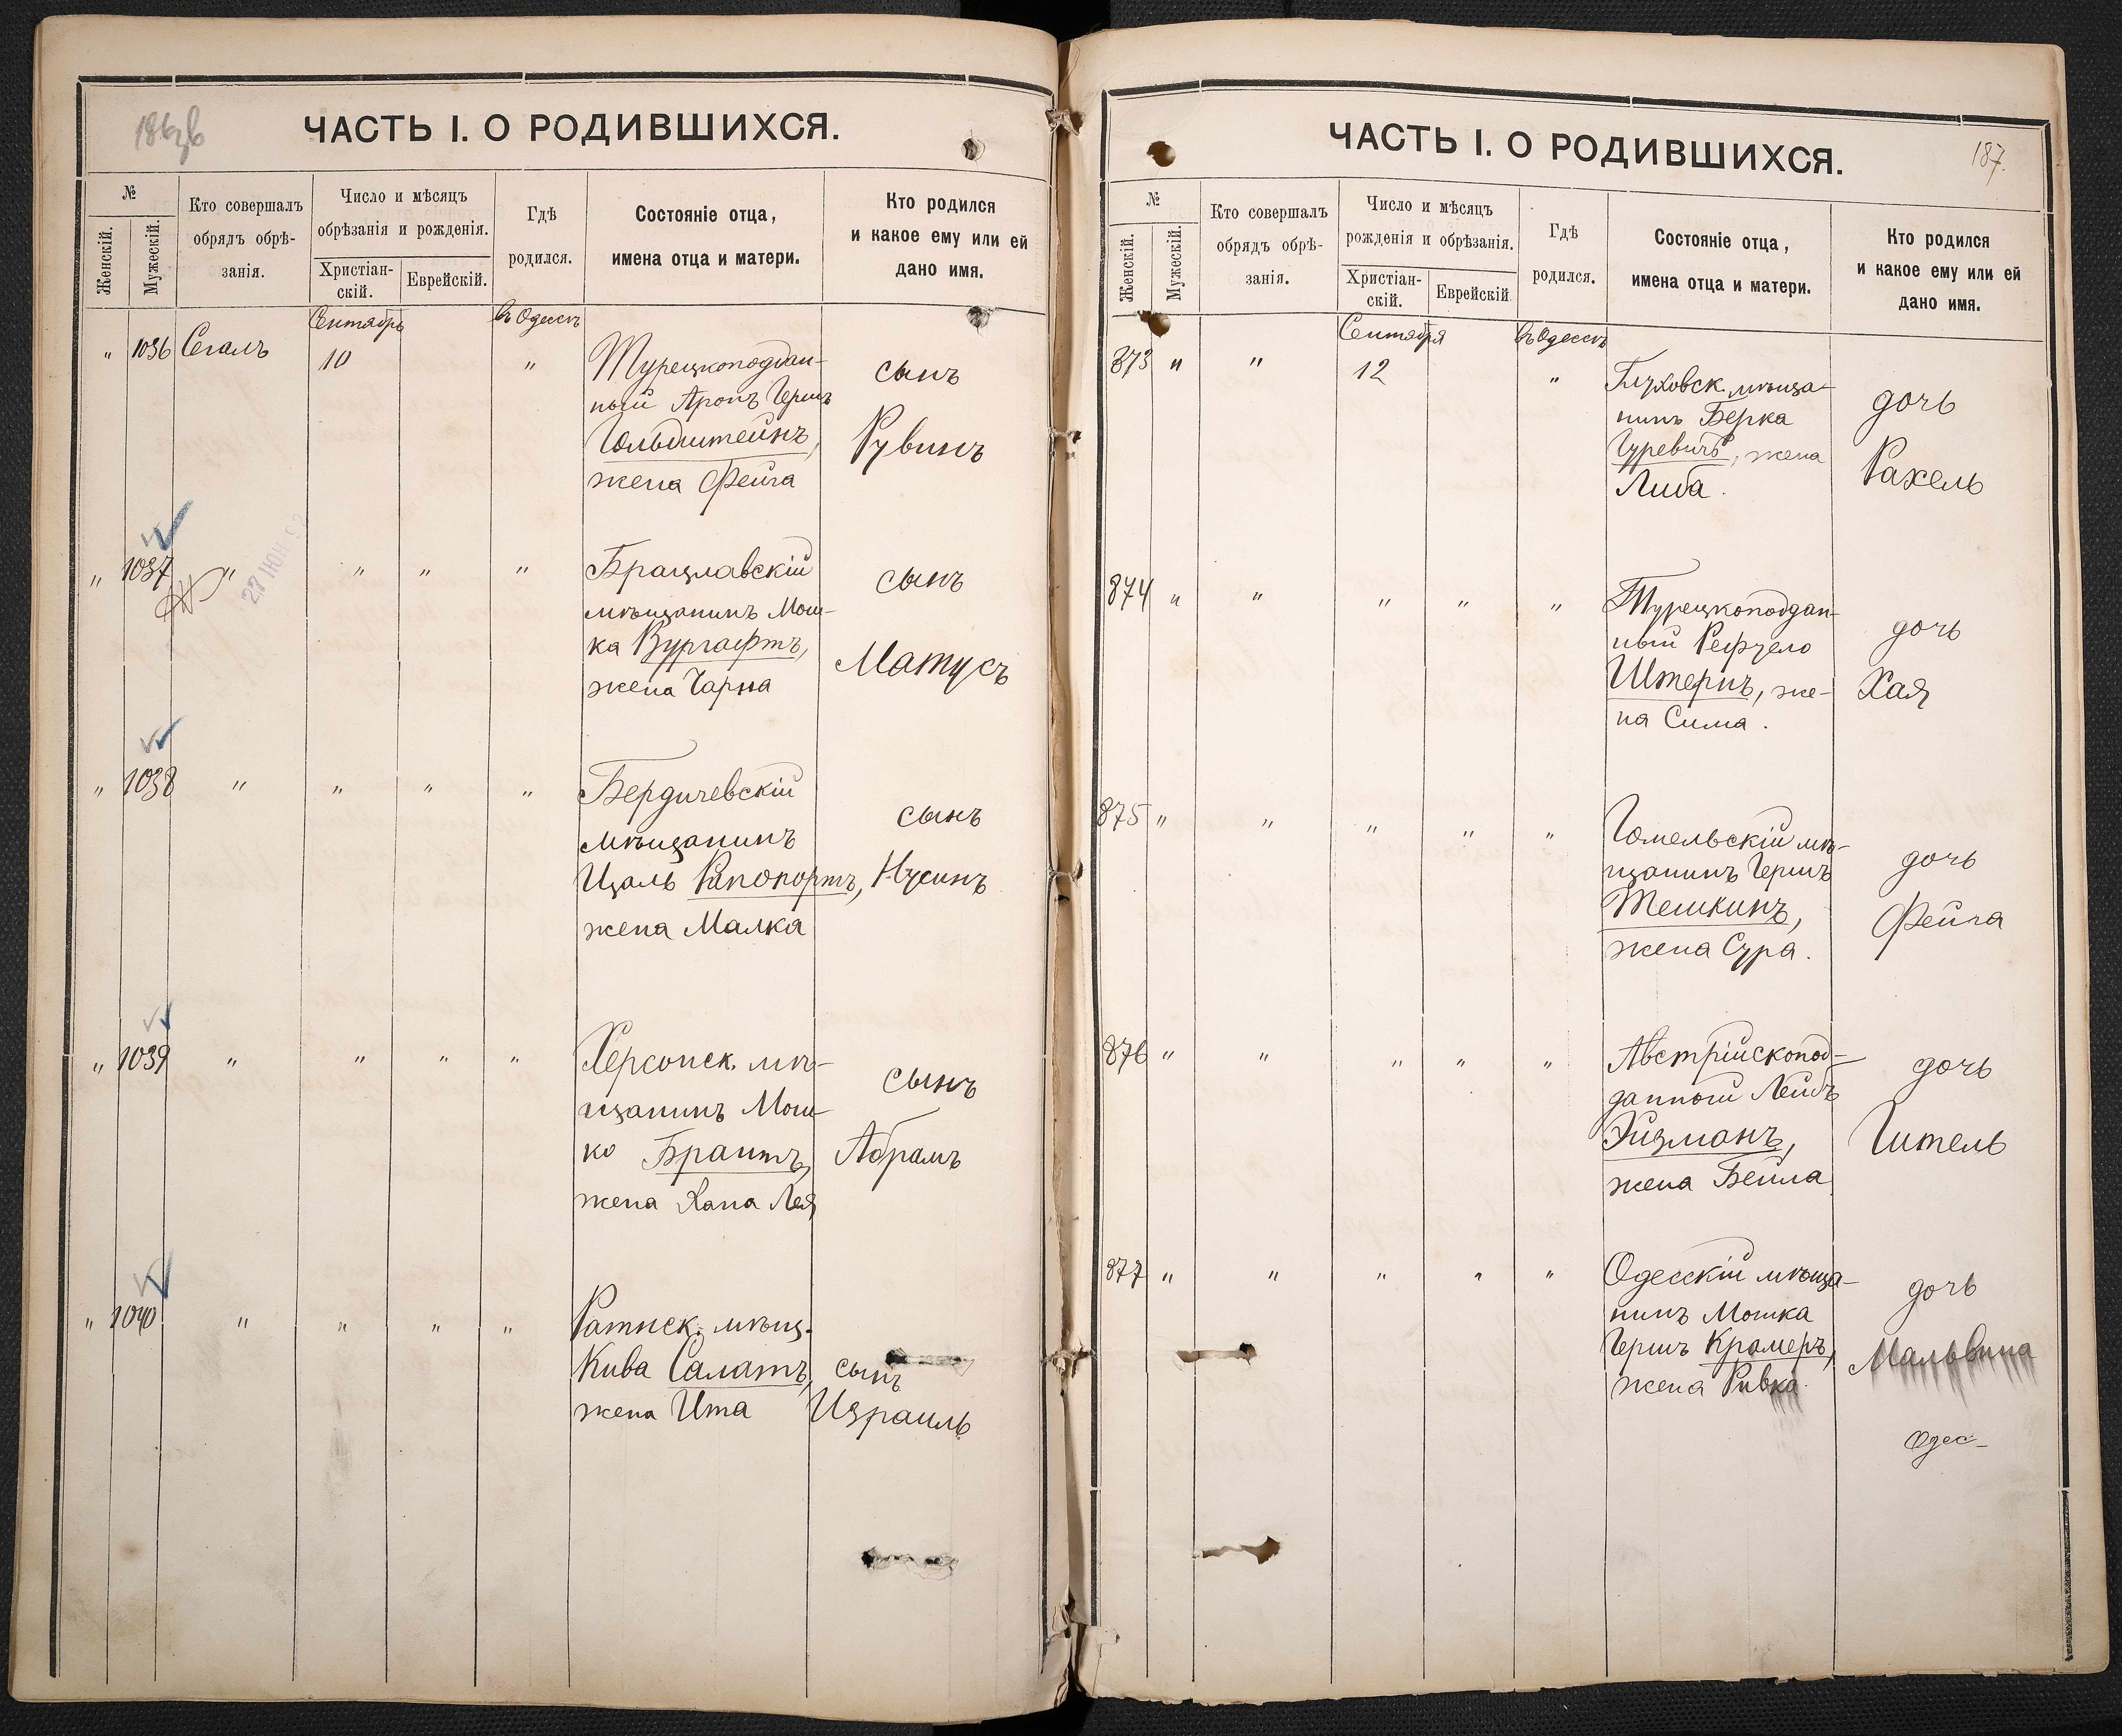 ЧАСТЬ I. О РОДИВШИХСЯ.
№
Женскій.
Мужескій.
Кто совершалъ
обрядъ обрѣ-
занія.
Число и мѣсяцъ
обрѣзанія и рожденія.
Христіан-
скій.
Еврейскій.
Гдѣ
родился.
Состояніе отца,
имена отца и матери.
Кто родился
и какое ему или ей
дано имя.
Сентябрь
въ Одессѣ
" 1036 Сегалъ 10 "
Турецкоподдан-
ный Аронъ Гершъ
Гольдштейнъ,
жена Фейга
сынъ
Рувинъ
" 1037 " " " "
27 ІЮН
Брацлавскій
мѣщанинъ Мош-
ка Вургафтъ,
жена Чарна
сынъ
Матусъ
" 1038 " " " "
Бердичевскій
мѣщанинъ
Ицаль Рапопортъ,
жена Малка
сынъ
Нусинъ
" 1039 " " " "
Херсонск. мѣ-
щанинъ Мош-
ко Брантъ,
жена Хана Лея
сынъ
Абрамъ
" 1040 " " " "
Ратнск. мѣщ.
Кива Салатъ,
жена Ита
сынъ
Израиль
ЧАСТЬ I. О РОДИВШИХСЯ.
187.
№
Женскій.
Мужескій.
Кто совершалъ
обрядъ обрѣ-
занія.
Число и мѣсяцъ
рожденія и обрѣзанія.
Христіан-
скій.
Еврейскій
Гдѣ
родился.
Состояніе отца,
имена отца и матери.
Кто родился
и какое ему или ей
дано имя.
Сентября
въ Одессѣ
873 " " 12 "
Глуховск. мѣща-
нинъ Берка
Гуревичъ, жена
Либа.
дочь
Рахель
874 " " " " "
Турецкоподдан-
ный
Штернъ, же-
на Сима.
дочь
Хая
875 " " " " "
Гомельскій мѣ-
щанинъ Гершъ
Тешкинъ,
жена Сура.
дочь
Фейга
876 " " " " "
Австрійскопод-
данный Лейбъ
Эйзманъ,
жена Бейла
дочь
Гитель
877 " " " " "
Одесскій мѣща-
нинъ Мошка
Гершъ Крамеръ,
жена Ривка.
дочь
Мальвина
Одес-